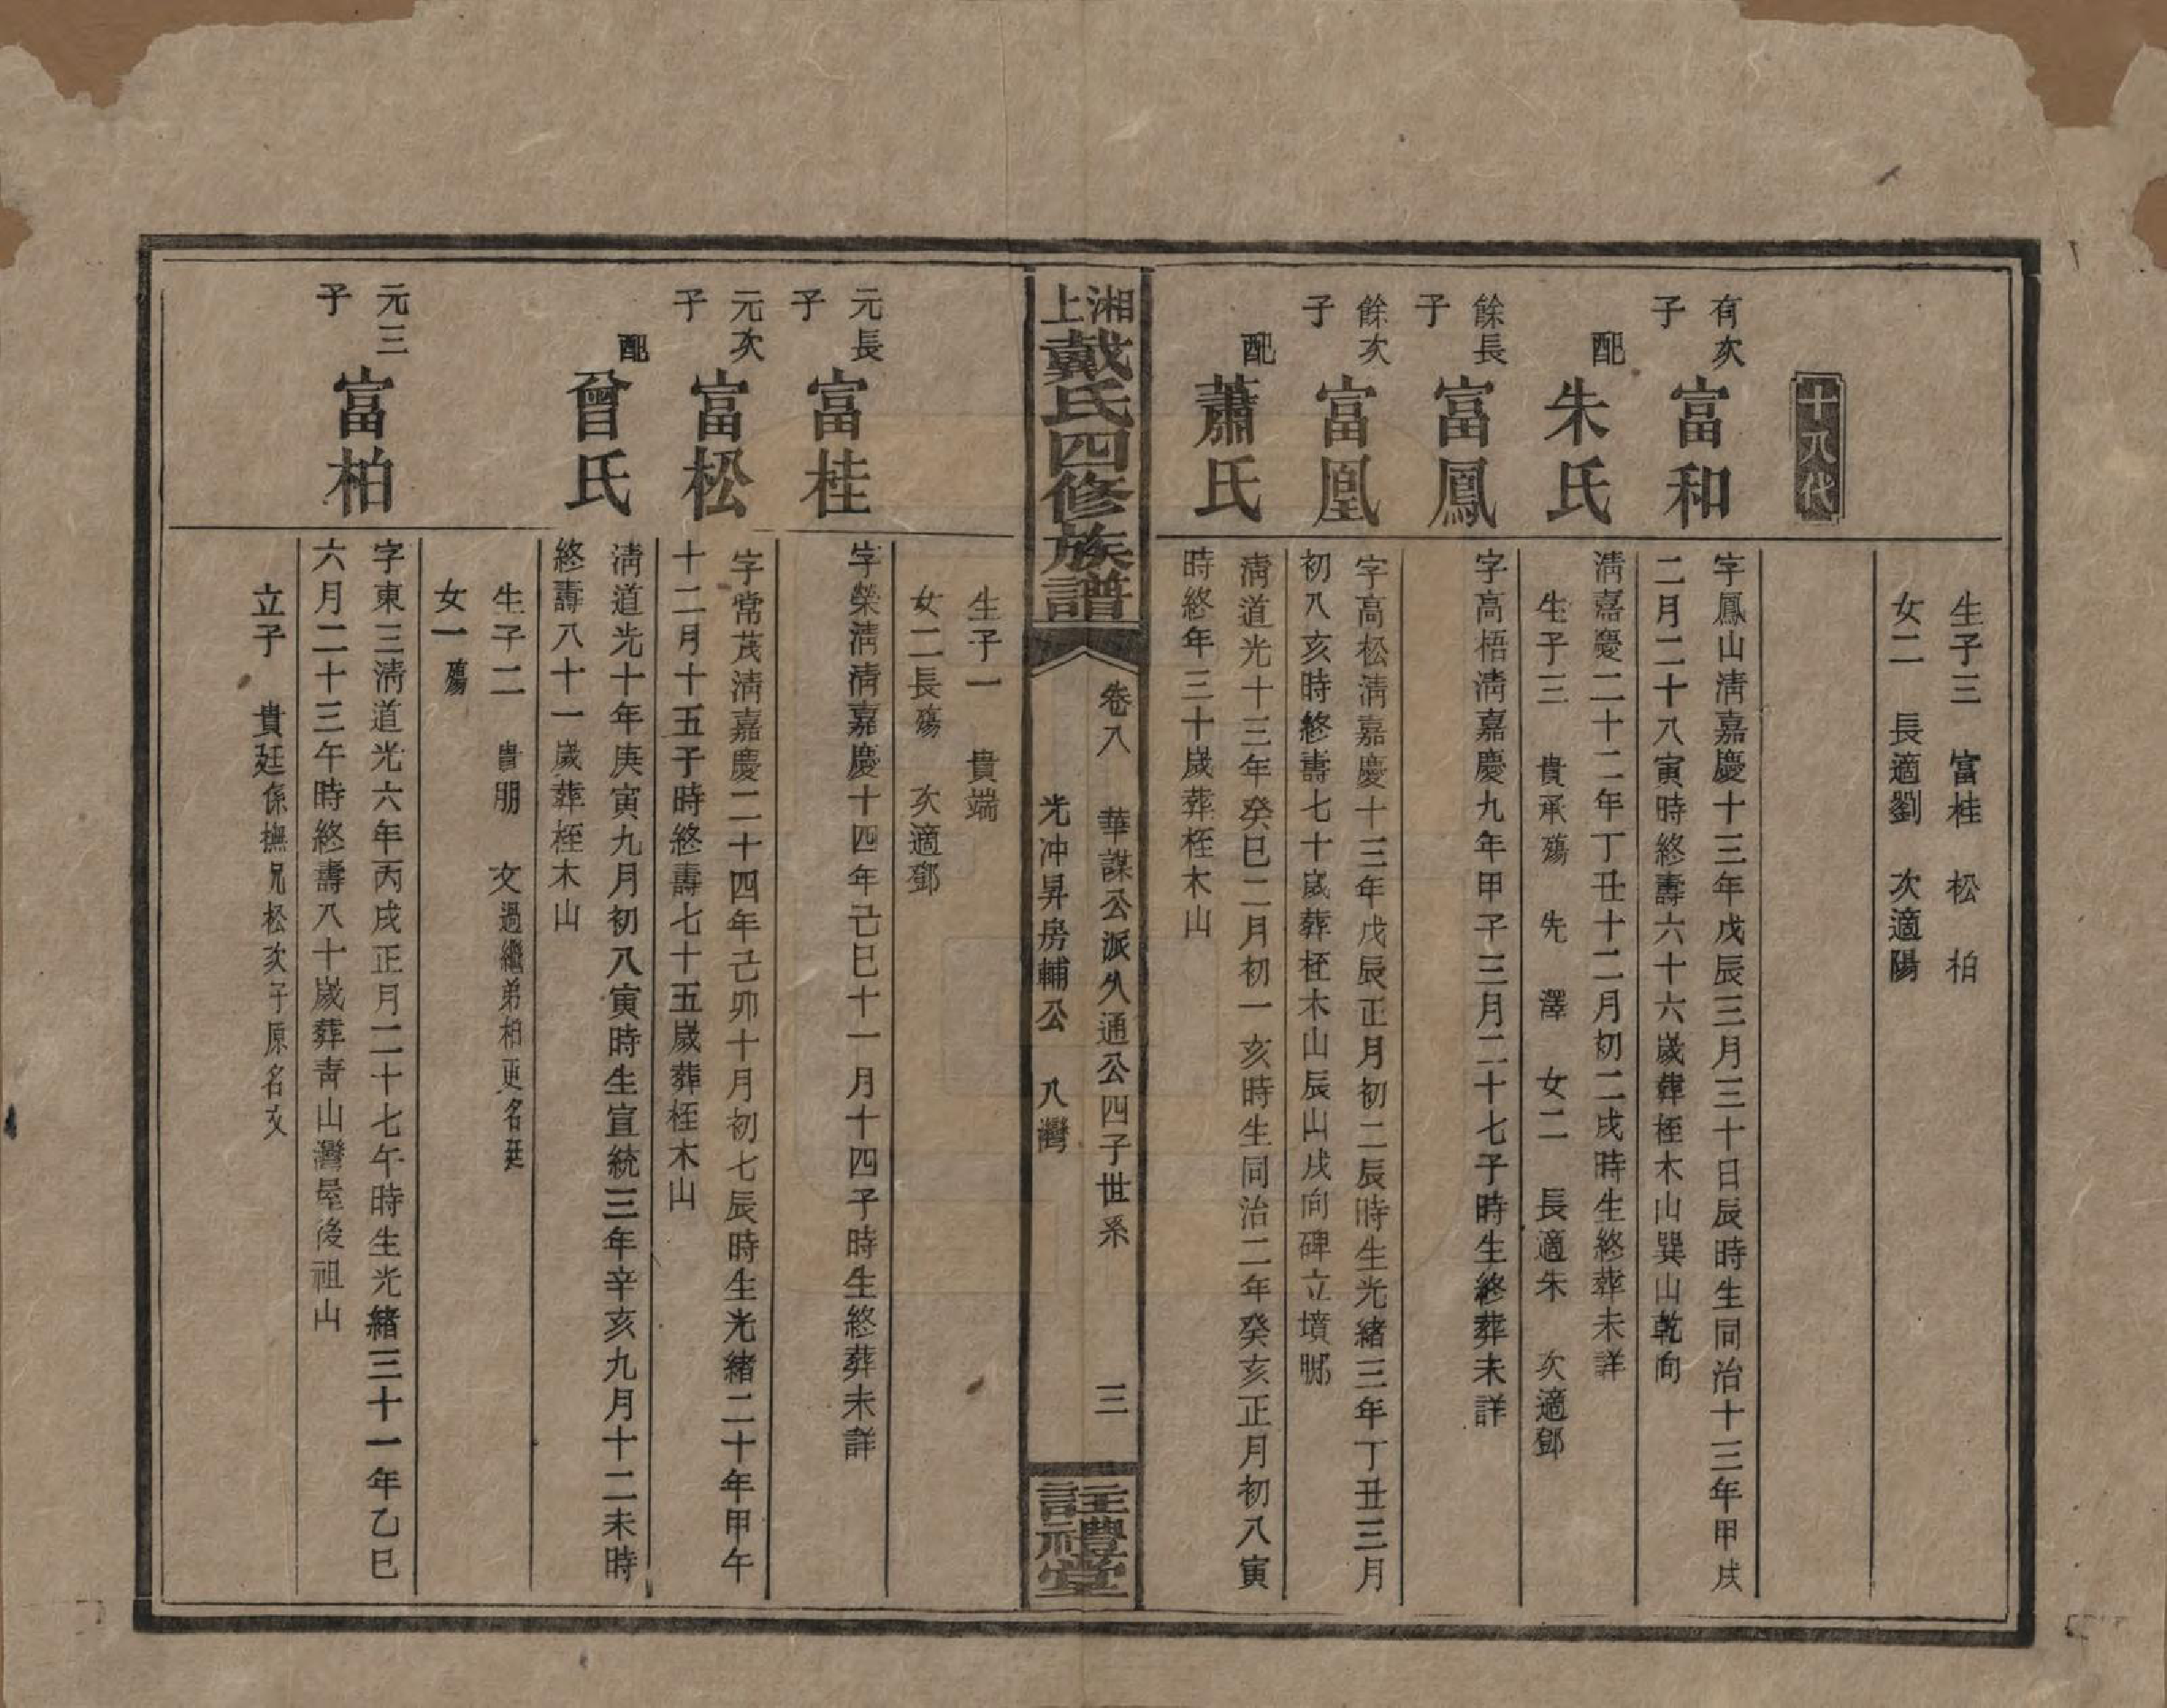 生子三　富桂　松　柏
女二　長適劉　次適陽
十八代
有次子
富和
字鳳山淸嘉慶十三年戊辰三月三十日辰時生同治十三年甲戌
二月二十八寅時終壽六十六歲葬桎木山巽山乾向
配
朱氏
淸嘉慶二十二年丁丑十二月初二戌時生終葬未詳
生子三　貴承殤　先　澤　女二　長適朱　次適鄧
餘長子
富鳳
字高梧淸嘉慶九年甲子三月二十七子時生終葬未詳
餘次子
富凰
字高松淸嘉慶十三年戊辰正月初二辰時生光緖三年丁丑三月
初八亥時終壽七十歲葬桎木山辰山戌向碑立墳腳
配
蕭氏
淸道光十三年癸巳二月初一亥時生同治二年癸亥正月初八寅
時終年三十歲葬桎木山
湘上戴氏四修族譜
卷八　華謀公派久通公四子世系　三
光冲昇房輔公　八灣
註禮堂
生子一　貴端
女二長殤　次適鄧
元長子
富桂
字榮淸淸嘉慶十四年己巳十一月十四子時生終葬未詳
元次子
富松
字常茂淸嘉慶二十四年己卯十月初七辰時生光緖二十年甲午
十二月十五子時終壽七十五歲葬桎木山
配
曾氏
淸道光十年庚寅九月初八寅時生宣統三年辛亥九月十二未時
終壽八十一歲葬桎木山
生子二　貴朋　文過繼弟柏更名廷
女一殤
元三子
富柏
字東三淸道光六年丙戌正月二十七午時生光緖三十一年乙巳
六月二十三午時終壽八十歲葬靑山灣屋後祖山
立子　貴廷係撫兄松次子原名文